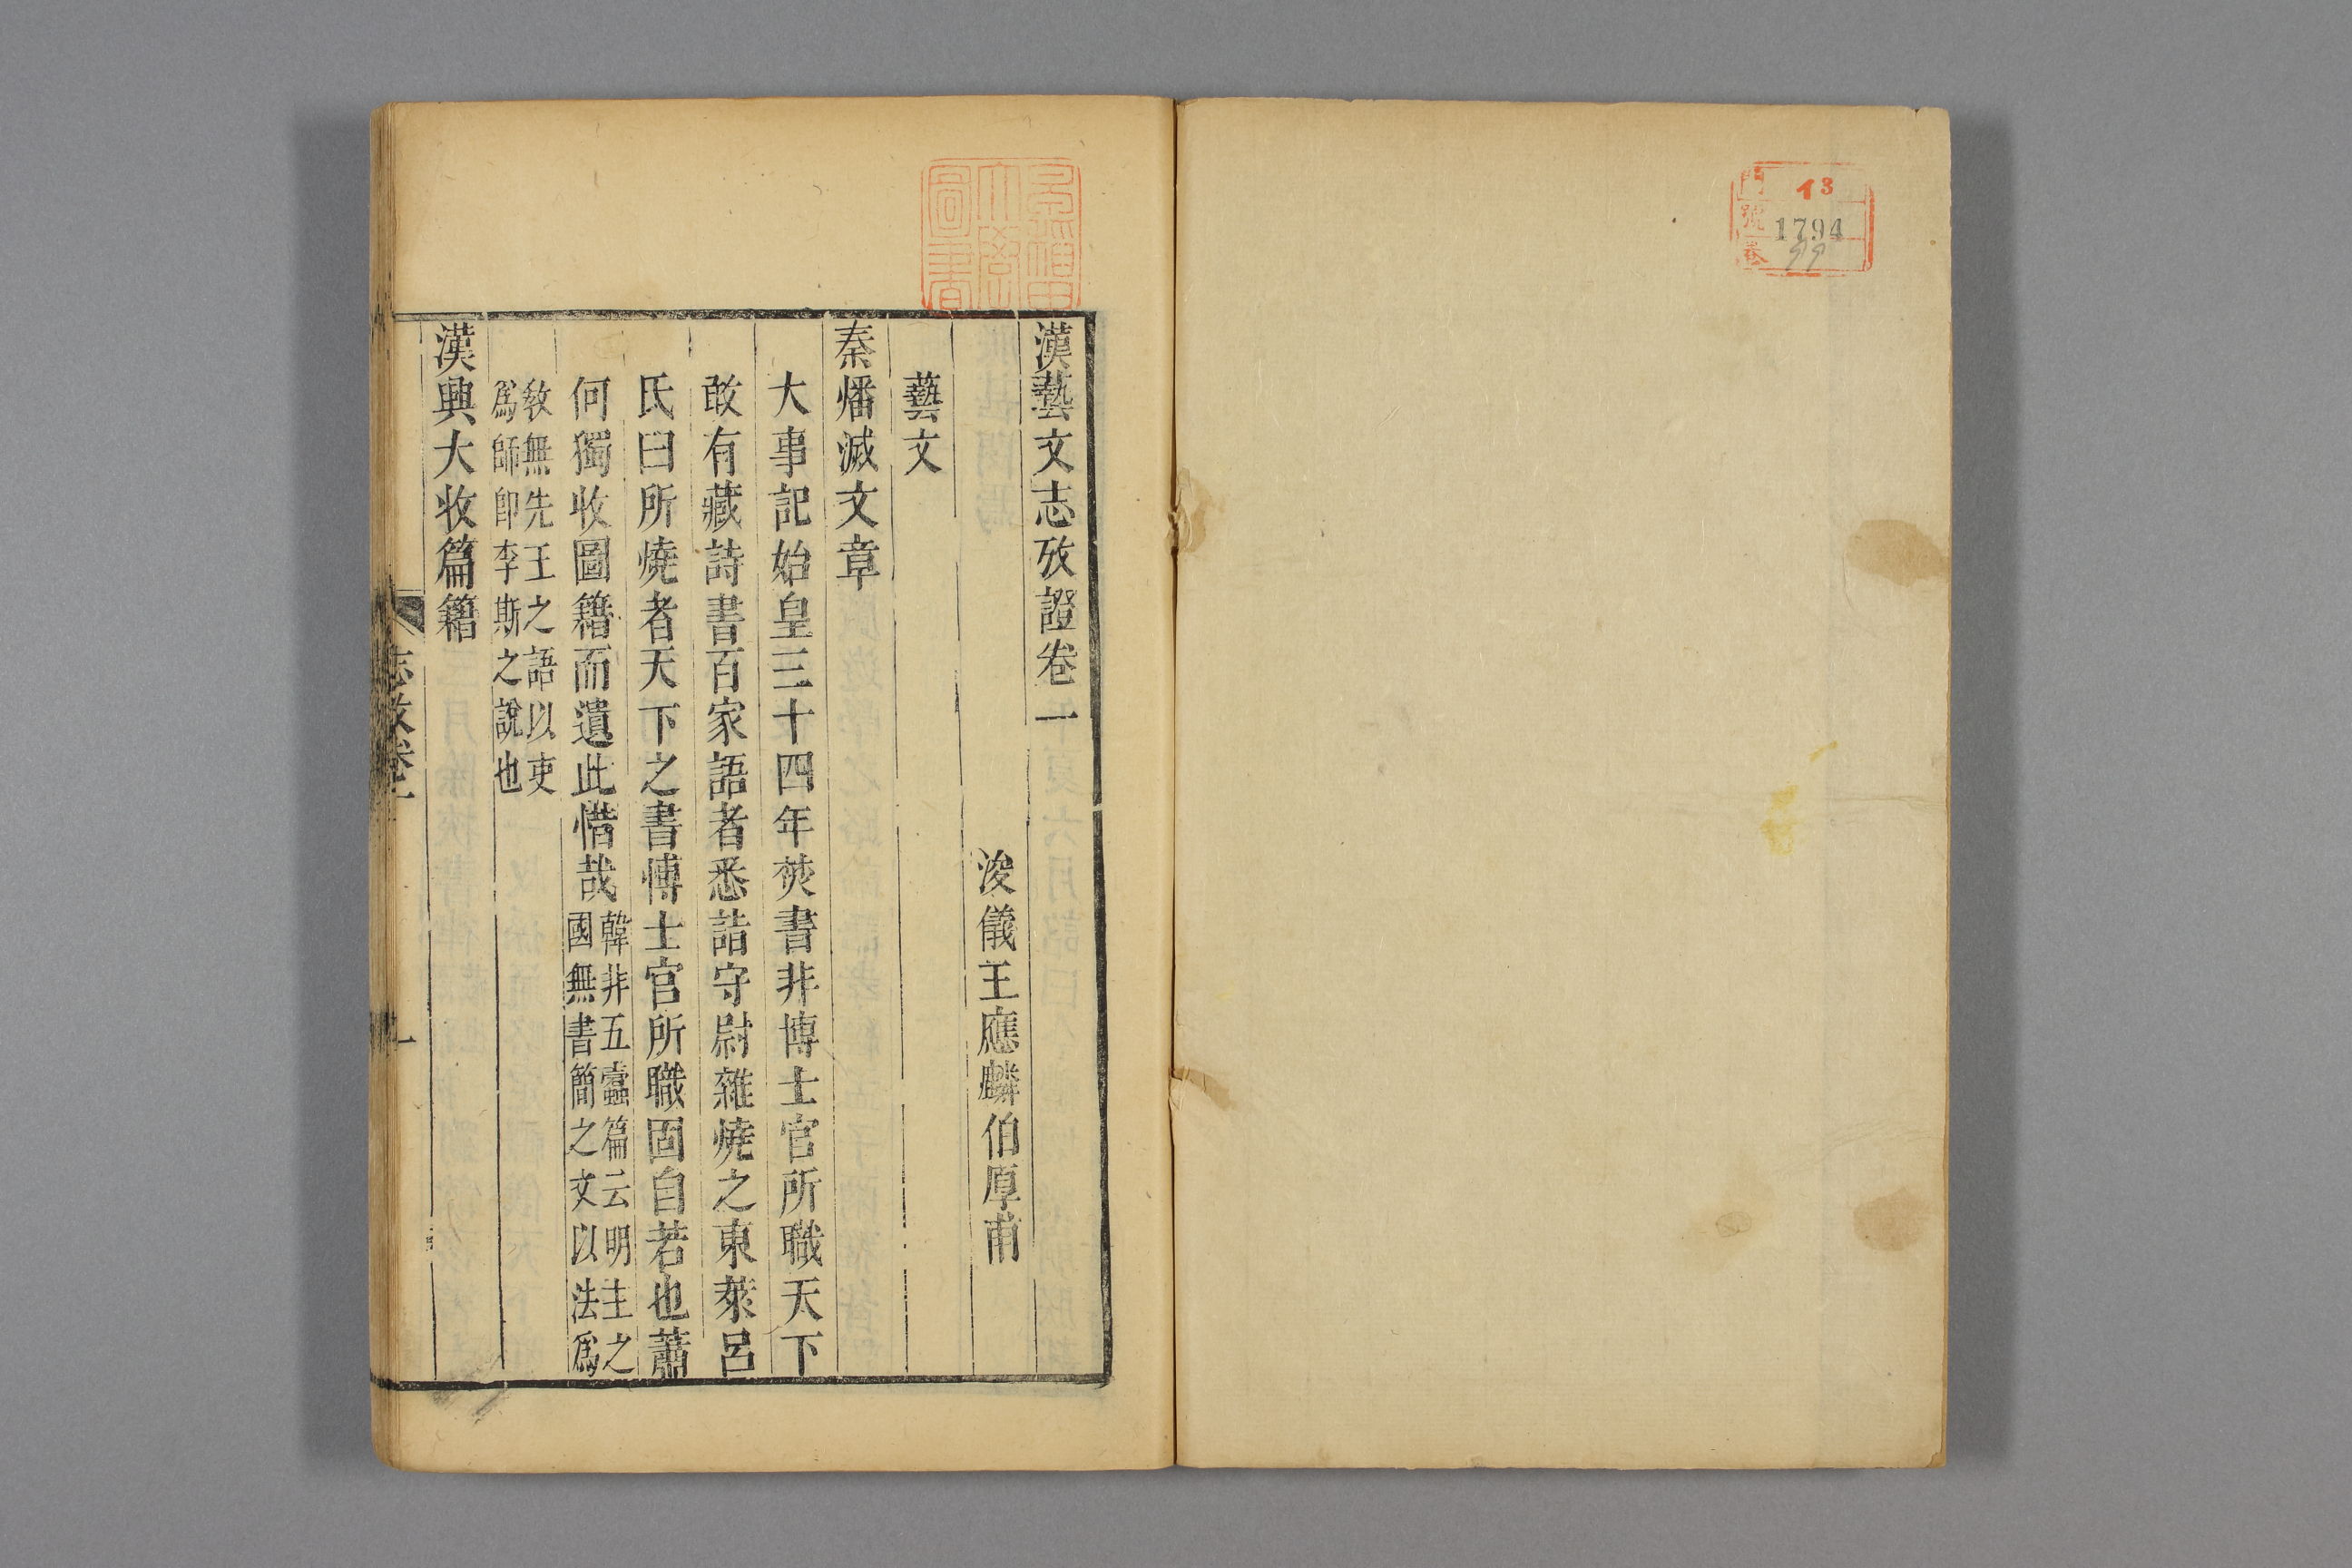 門 13
號 1794
卷 99
漢藝文志攷證卷一
浚儀王應麟伯厚甫
藝文
秦燔滅文章
大事記始皇三十四年焚書非博士官所職天下
敢有藏詩書百家語者悉詣守尉雜燒之東萊呂
氏曰所燒者天下之書博士官所職固自若也蕭
何獨收圖籍而遺此惜哉韓非五蠹篇云明主之國無書簡之文以法爲
敎無先王之語以吏爲師卽李斯之說也
漢興大收篇籍
志攷卷一
一